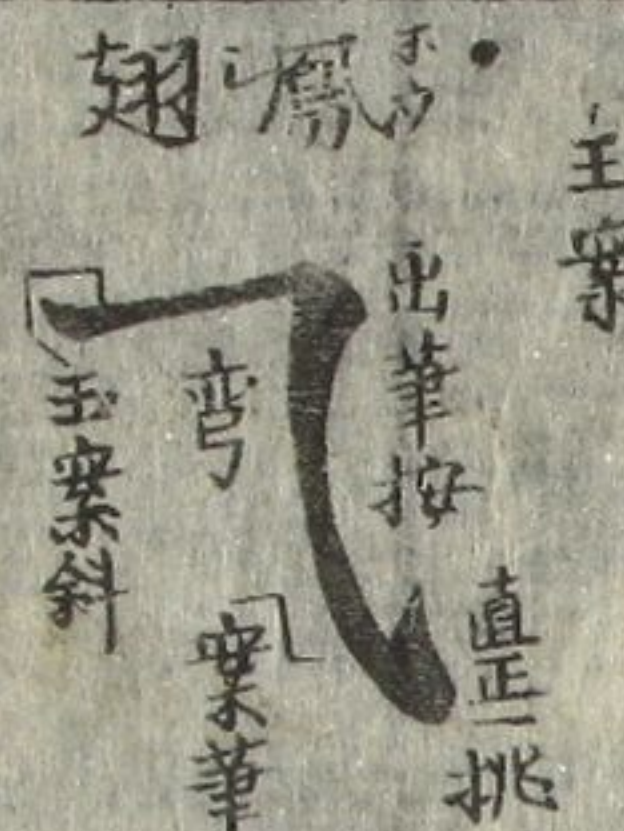 主案
鳳翅
出筆按
直正一挑
弯
案筆
玉案斜